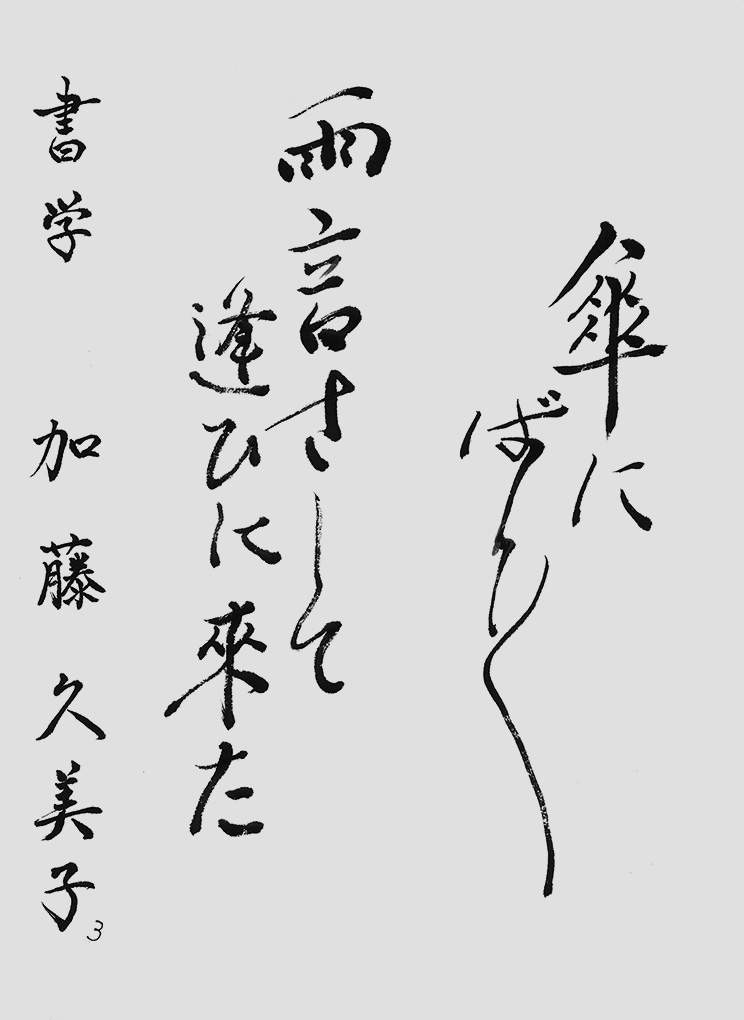 傘に
ばり〱
雨音さして
逢ひに來た
書学 加藤久美子 3